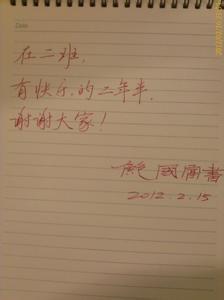 Date
在二班,
有快乐的二年半.
谢谢大家!
2012.2.15